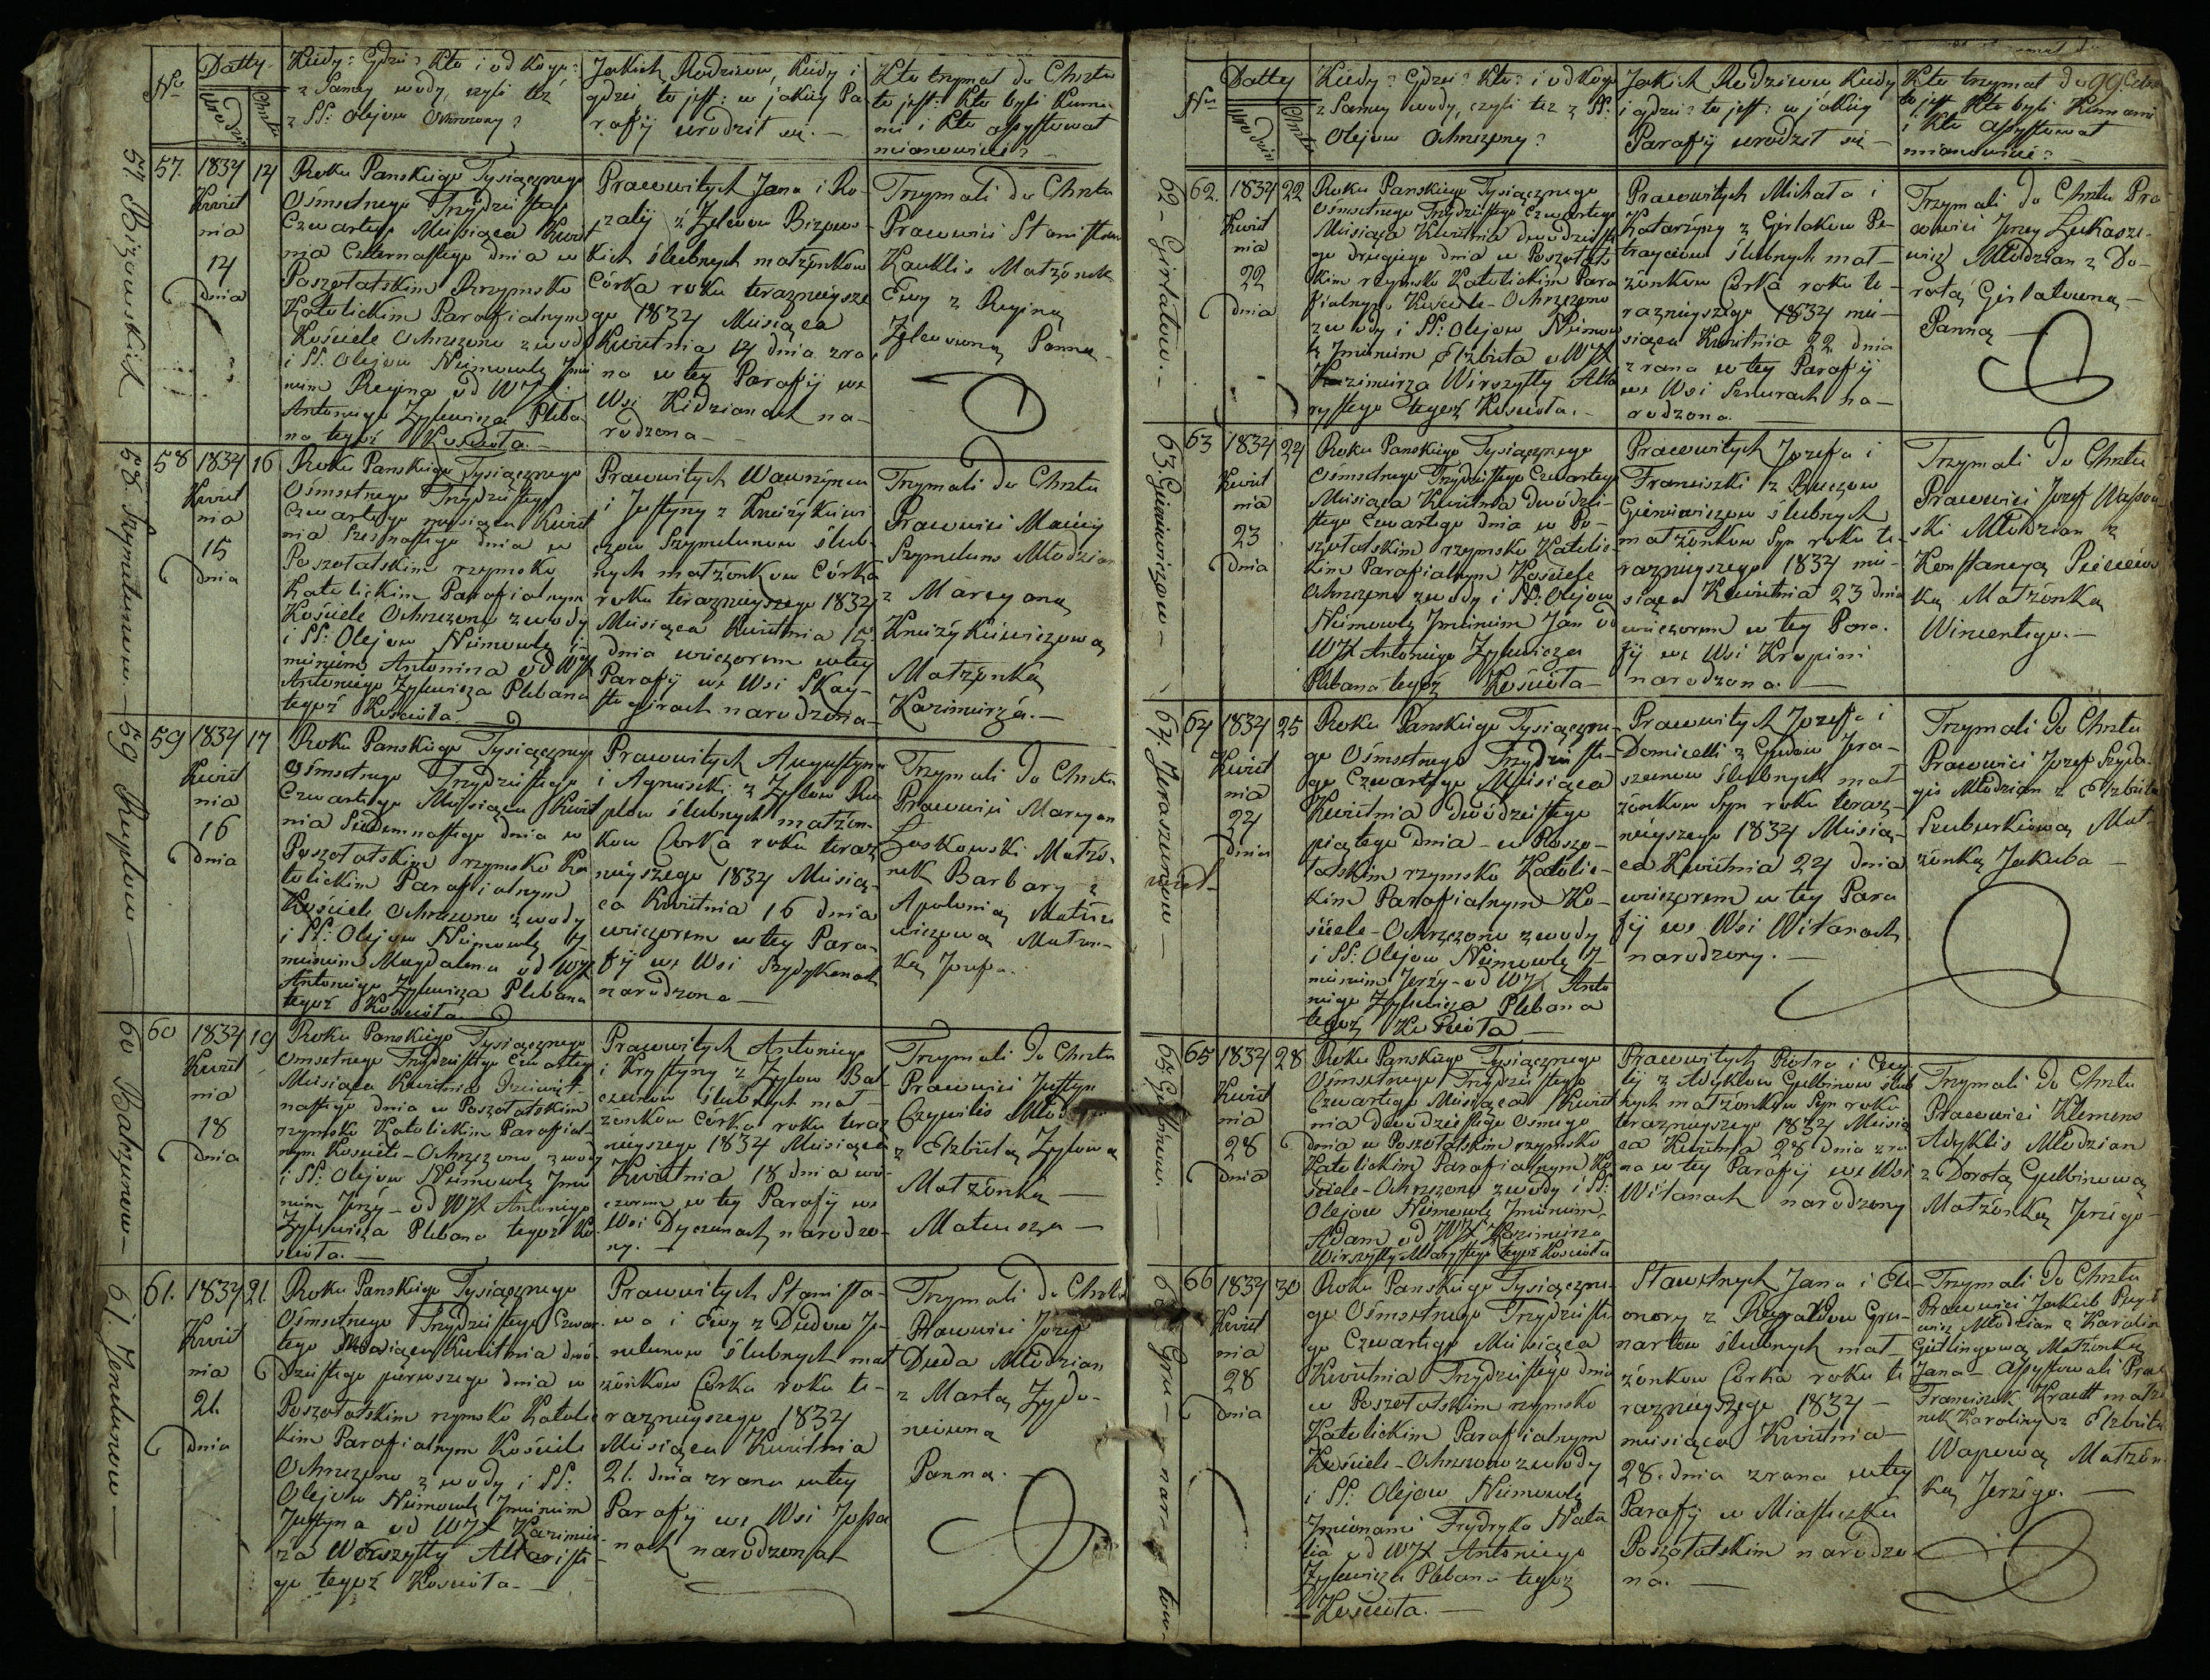 Nro
Datty
Urodzin
Chrztu
Kiedy? Gdzie? Kto i od kogo?
z Samey wody, czyli też
z SS: Olejow Ochrzczony?
Jakich Rodzicow, kiedy i
gdzie to jest: w jakiey Pa-
rafij urodził się. —
Kto trzymał do Chrztu
to jest: Kto byli Kuma-
mi i Kto assystował
mianowicie?
57. Bizowskich
57.
1834
Kwiet
nia
14
dnia
14
Roku Panskiego Tysiącznego
Ośmsetnego Trzydziestego
Czwartego Miesiąca Kwiet
nia Czternastego dnia w
Poszołatskim Rzymsko
Katolickim Parafialnym
Kościele Ochrzczono z wody
i SS: Olejow Niemowlę Imie
niem Regina od WJX
Antoniego Zylewicza Pleba-
na tegoż Kościoła. —
Prawowitych Jana i Ro-
zalij z Zelwow Bizows-
kich ślubnych małżonkow
Córka roku teraznieysze
go 1834 Miesiąca
Kwietnia 14 dnia zra
na w tey Parafij we
Wsi Kidzianach na-
rodzona —
Trzymali do Chrztu
Prawowici Stanisław
Kauklis Małżonek
Ewy z Reginą
Zelwowną Panną —
58. Szymelunow. —
58
1834
Kwiet
nia
15
dnia
16
Roku Panskiego Tysiącznego
Ośmsetnego Trzydziestego
Czwartego miesiąca Kwiet
nia Szesnastego dnia w
Poszołatskim rzymsko
Katolickim Parafialnym
Kościele Ochrzczono z wody
i SS: Olejow Niemowlę i-
mieniem Antonina od WJX
Antoniego Zylewicza Plebana
tegoż Kościoła. —
Prawowitych Wawrzyńca
i Justyny z Knieżykiewi
czow Szymelunow ślub-
nych małżonkow Córka
roku teraznieyszego 1834
Miesiąca Kwietnia 15
dnia wieczorem w tey
Parafij we Wsi Skay-
stogirach narodzona —
Trzymali do Chrztu
Prawowici Maciey
Szymelun Młodzian
z Maryanną
Knieżykiewiczową
Małżonką
Kazimierza. —
59 Ruplow —
59
1834
Kwiet
nia
16
dnia
17
Roku Panskiego Tysiącznego
Ośmsetnego Trzydziestego
Czwartego Miesiąca Kwiet
nia Siedemnastego dnia w
Poszołatskim rzymsko Ka
tolickim Parafialnym
Kościele Ochrzczono z wody
i SS: Olejow Niemowlę I-
mieniem Magdalena od WJX
Antoniego Zylewicza Plebana
tegoż Kościoła. —
Prawowitych Augustyna
i Agnieszki z Zylow Ru
plow ślubnych małżon-
kow Corka roku teraz
nieyszego 1834 Miesią-
ca Kwietnia 16 dnia
wieczorem w tey Para-
fij we Wsi Szydykanach
narodzona —
Trzymali do Chrztu
Prawowici Maryan
Laskowski Małżo-
nek Barbary z
Apolonią Matu
wiczową Małżon-
ką Jozefa.
60 Balczunow —
60
1834
Kwiet
nia
18
dnia
19
Roku Panskiego Tysiącznego
Ośmsetnego Trzydziestego Czwartego
Miesiąca Kwietnia Dziewięt-
nastego dnia w Poszołatskim
rzymsko Katolickim Parafial-
nym Kościele — Ochrzczono z wody
i SS: Olejow Niemowlę Imie
niem Jerzy — od WJX Antoniego
Zylewicza Plebana tegoż Ko-
ścioła. —
Prawowitych Antoniego
i Krystyny z Zylow Bal-
czunow ślubnych mał-
żonkow Córka roku teraz
nieyszego 1834 Miesiąca
Kwietnia 18 dnia wie-
czorem w tey Parafij we
Wsi Dyczunach narodzo-
ny. —
Trzymali do Chrztu
Prawowici Justyn
z Elżbietą Zylową
Małżonką —
Mateusza —
61. Jenelunow —
61.
1834
Kwiet
nia
21.
dnia
21.
Roku Panskiego Tysiącznego
Ośmsetnego Trzydziestego Czwar-
tego Miesiąca Kwietnia dwó-
dziestego pierwszego dnia w
Poszołatskim rzymsko Katolic
kim Parafialnym Kościele
Ochrzczono z wody i SS:
Olejow Niemowlę Imieniem
Justyna od WJX Kazimie-
rza Wirszyłły Altaryste-
go tegoż Kościoła. —
Prawowitych Stanisła-
wa i Ewy z Dudow Je-
nelunow ślubnych mał
żonkow Córka roku te-
raznieyszego 1834
Miesiąca Kwietnia
21. dnia zrana w tey
Parafij we Wsi Jossa
nach narodzona —
Trzymali do Chrztu
Prawowici Jozef
Duda Młodzian
z Martą Zyge-
newną
Panną. —
99
Nro
Datty
Urodzin
Chrztu
Kiedy? Gdzie? Kto? i od Kogo
z Samey wody, czyli też z SS:
Olejow Ochrzczony?
Jakich Rodzicow kiedy
i gdzie? to jest: w jakiey
Parafij urodził się —
Kto trzymał do Chrztu
to jest Kto byli Kumami
i Kto assystował
mianowicie? —
62 — Girlatow. —
62.
1834
Kwiet
nia
22
dnia
22
Roku Panskiego Tysiącznego
Ośmsetnego Trzydziestego Czwartego
Miesiąca Kwietnia dwudzieste
go drugiego dnia w Poszołats
kim rzymsko Katolickim Para
fialnym Kościele — Ochrzczono
z wody i SS: Olejow Niemow
lę Imieniem Elżbieta od WJX
Kazimierza Wirszyłły Alta
rystego tegoż Kościoła. —
Prawowitych Michała i
Katarzyny z Girlatow Pe-
trayciow ślubnych mał-
żonkow Córka roku te-
raznieyszego 1834 mie-
siąca Kwietnia 22 dnia
zrana w tey Parafij
we Wsi Sznurach na-
rodzona.
Trzymali do Chrztu Pra
wowici Jerzy Łukasze-
wicz Młodzian z Do-
rotą Girlatowną —
Panną —
63. Gieniewiczow —
63
1834
Kwiet
nia
23
dnia
24
Roku Panskiego Tysiącznego
Ośmsetnego Trzydziestego Czwartego
Miesiąca Kwietnia dwódzie-
stego czwartego dnia w Po-
szołatskim rzymsko Katolic-
kim Parafialnym Kościele
Ochrzczono z wody i SS: Olejow
Niemowlę Imieniem Jan od
WJX Antoniego Zylewicza
Plebana tegoż Kościoła —
Prawowitych Jozefa i
Franciszki z Buczow
Gieniewiczow ślubnych
małżonkow Syn roku te-
raznieyszego 1834 mie-
siąca Kwietnia 23 dnia
wieczorem w tey Para-
fij we Wsi Kropini
narodzona. —
Trzymali do Chrztu
Prawowici Jozef
ski Młodzian z
Konstancyą
ką Małżonką
Wincentego. —
64. Jeraszunow —
64
1834
Kwiet
nia
24
dnia
25
Roku Panskiego Tysiączne-
go Ośmsetnego Trzydzieste-
go Czwartego Miesiąca
Kwietnia dwódziestego
piątego dnia — w Poszo-
łatskim rzymsko Katolic-
kim Parafialnym Ko-
ściele — Ochrzczono z wody
i SS: Olejow Niemowlę I-
mieniem Jerzy — od WJX Anto
niego Zylewicza Plebana
tegoż Kościoła —
Prawowitych Jozefa i
Domicelli z Jera-
szunow ślubnych mał
żonkow Syn roku teraz-
nieyszego 1834 Miesią-
ca Kwietnia 24 dnia
wieczorem w tey Para
fij we Wsi Witanach
narodzony. —
Trzymali do Chrztu
Prawowici Jozef Szyda-
gis Młodzian z Elżbietą
Szuburkiową Mał
żonką Jakuba —
65. Gulbinow. —
65
1834
Kwiet
nia
28
dnia
28
Roku Panskiego Tysiącznego
Ośmsetnego Trzydziestego
Czwartego Miesiąca Kwiet
nia dwódziestego osmego
dnia w Poszołatskim rzymsko
Katolickim Parafialnym Ko
ściele — Ochrzczono z wody i SS:
Olejow Niemowlę Imieniem
Adam od WJX Kazimierza
Wirszyłły Altarystego tegoż Kościoła
Prawowitych Piotra i Cecy
lij z Adyklow Gulbinow ślub
nych małżonkow Syn roku
teraznieyszego 1834 Miesią
ca Kwietnia 28 dnia zra
na w tey Parafij we Wsi
Witanach narodzony
Trzymali do Chrztu
Prawowici Klemens
Adyklis Młodzian
z Dorotą Gulbinową
Małżonką Jerzego —
66. Gru — nar — tow —
66
1834
Kwiet
nia
28
dnia
30
Roku Panskiego Tysiączne-
go Ośmsetnego Trzydzieste
go Czwartego Miesiąca
Kwietnia Trzydziestego dnia
w Poszołatskim rzymsko
Katolickim Parafialnym
Kościele — Ochrzczono z wody
i SS: Olejow Niemowlę
Imionami Frydryka Nata
lia od WJX Antoniego
Zylewicza Plebana tegoż
Kościoła. —
Sławetnych Jana i Ele-
onory z Gru-
nartow ślubnych mał-
żonkow Córka roku te
raznieyszego 1834 —
miesiąca Kwietnia —
28. dnia zrana w tey
Parafij w Miasteczku
Poszołatskim narodzo
na. —
Trzymali do Chrztu
Prawowici Jakub
wicz Młodzian z Karolin
Gietlingową Małżonką
Jana — assystowali Praw
Franciszek Krautt małżo
nek Karoliny z Elżbietą
Wapową Małżon
ką Jerzego. —